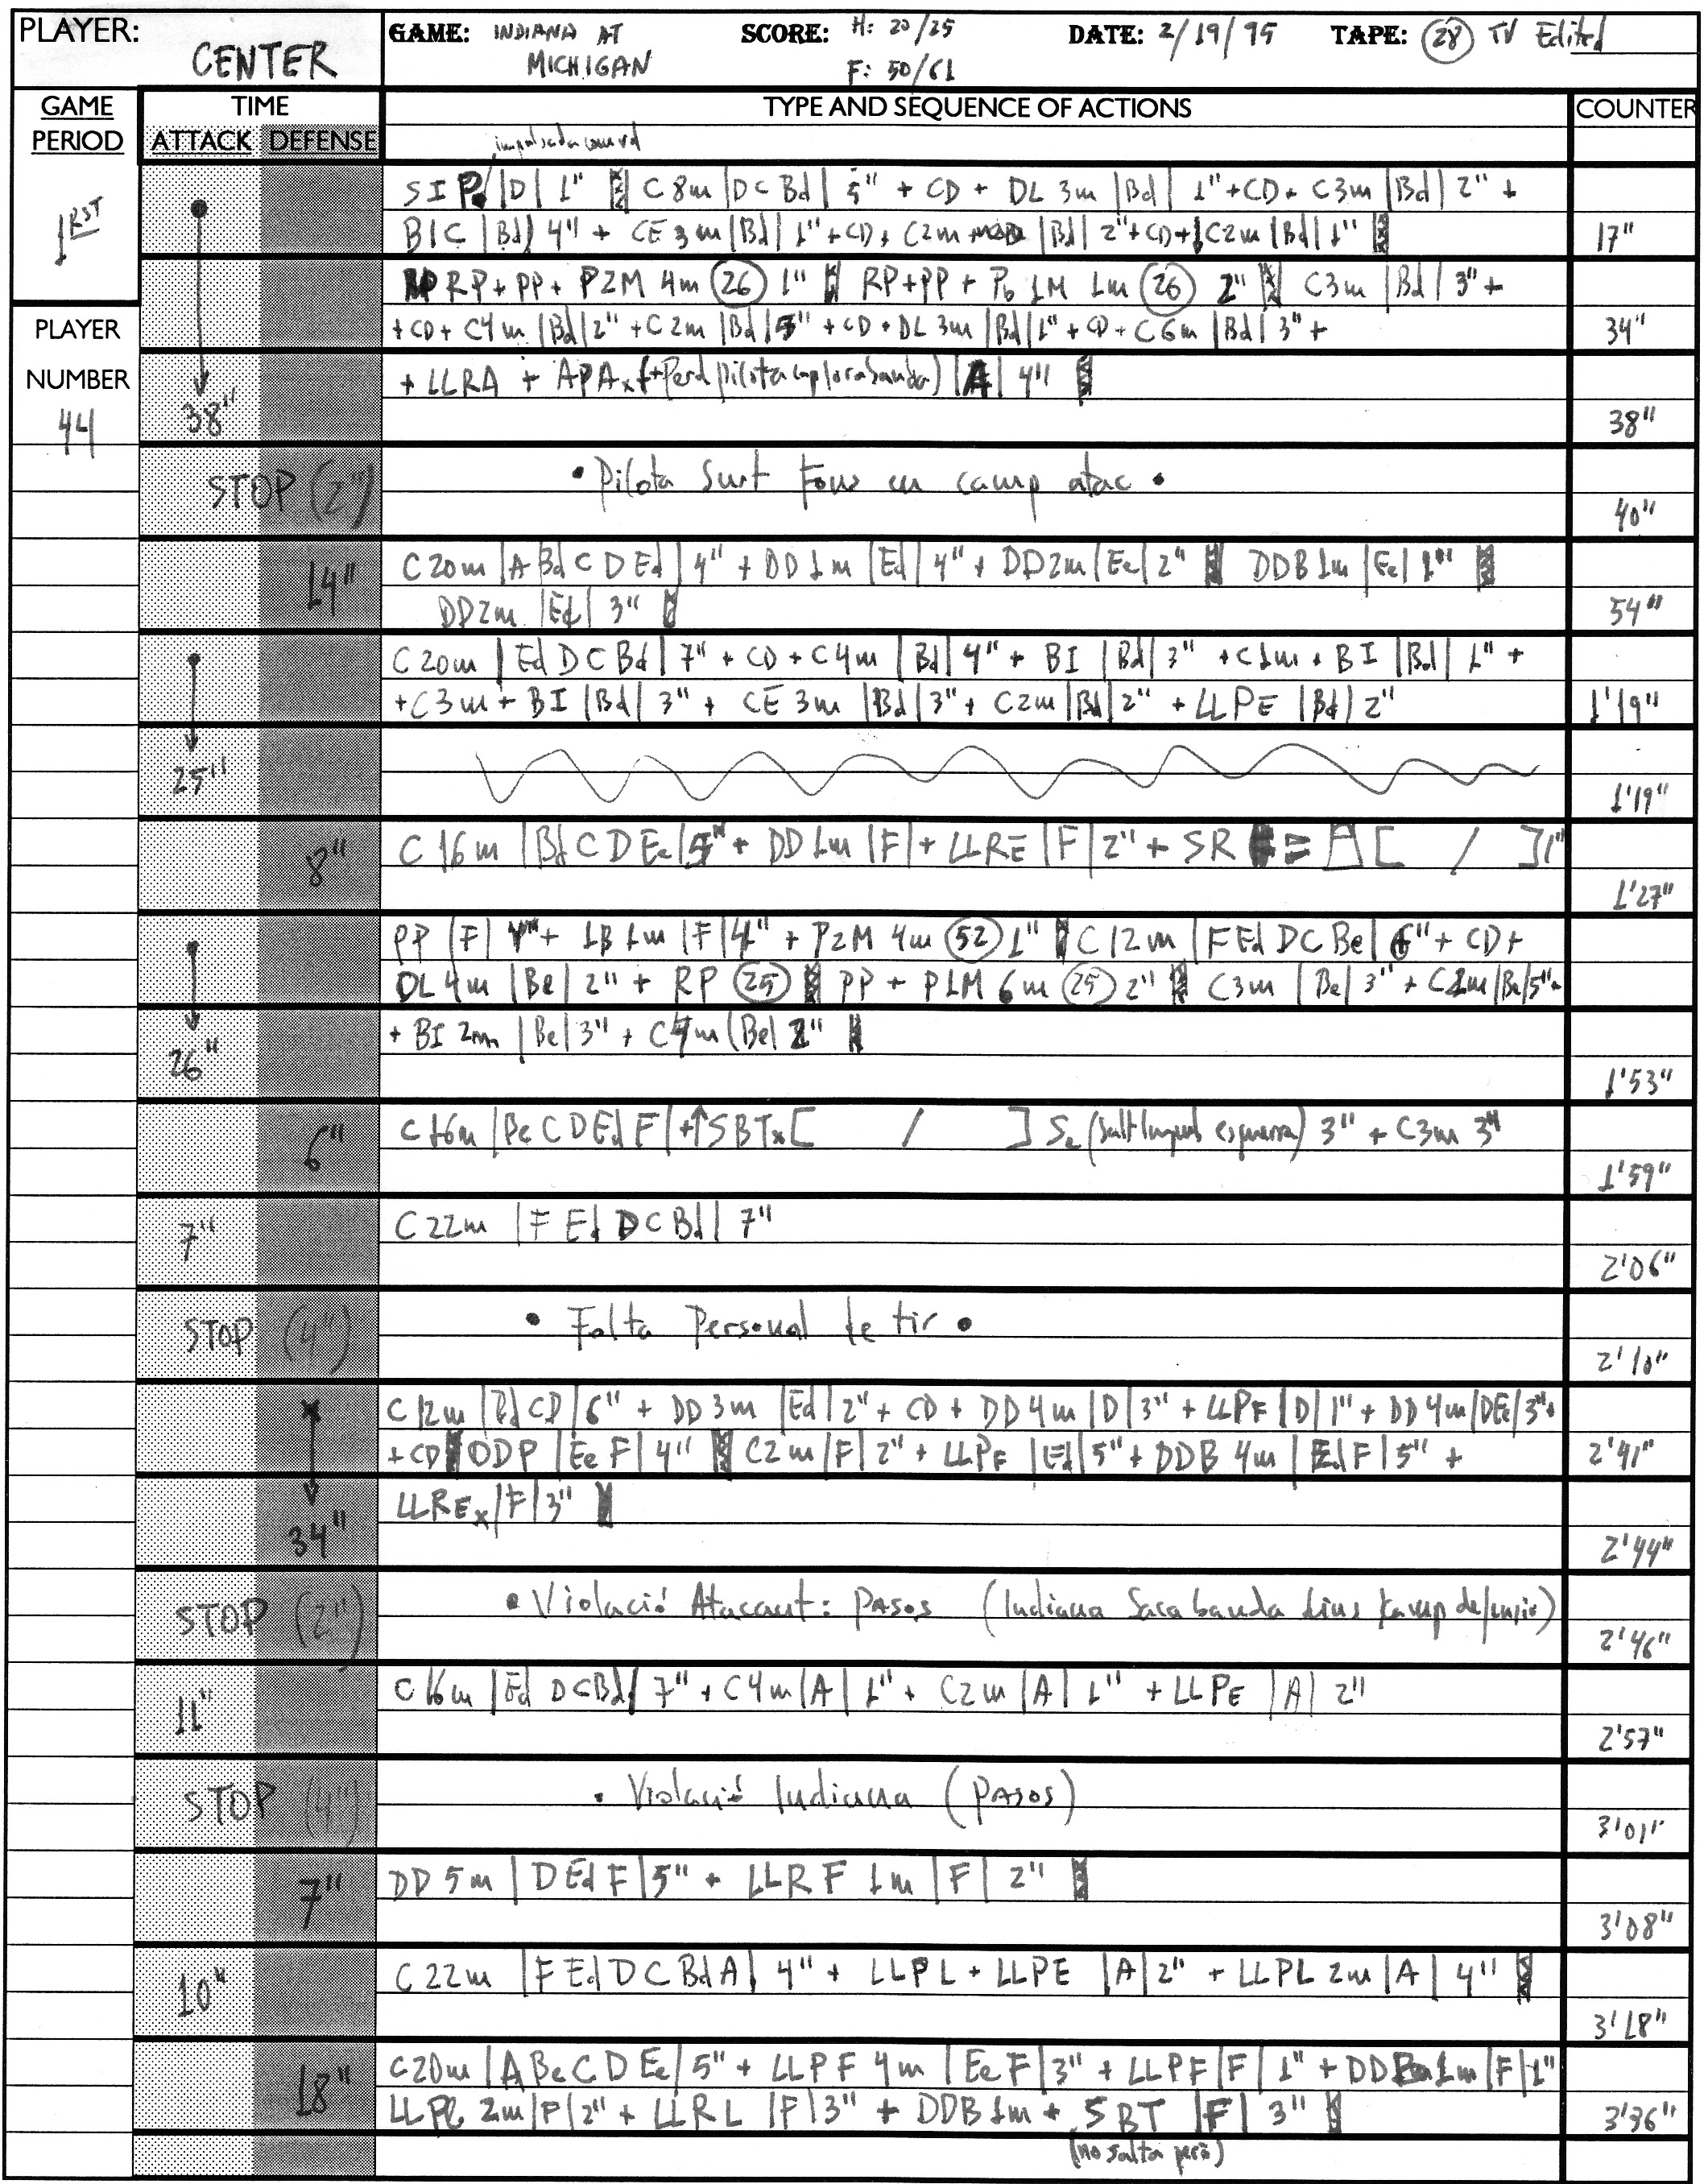 PLAYER: CENTER
GAME: INDIANA AT MICHIGAN
SCORE: H: 20/25
F: 50/61
DATE: 2/19/95
TAPE: 28 TV Edited
GAME PERIOD
TIME
ATTACK DEFENSE
TYPE AND SEQUENCE OF ACTIONS
COUNTER
1RST
SIP |D| 1" C 8m |DC Bd| 5" + CD + DL 3m |Bd| 1" + CD + C3m |Bd| 2" +
BIC |Bd| 4" + CE 3m |Bd| 1" + CD + C2m |Bd| 2" + CD + C2m |Bd| 1"
17"
RP + PP + P2M 4m (26) 1" RP + PP + Pb 1M 1m (26) 2" C3m |Bd| 3" +
PLAYER NUMBER
44
+ CD + C4m |Bd| 2" + C2m |Bd| 5" + CD + DL 3m |Bd| 1" + CD + C6m |Bd| 3" +
34"
+ LLRA + APAx |A| 4"
38"
38"
STOP (2")
• Pilota Surt Fons en camp atac •
40"
14"
C 20m |A Bd C D Ed| 4" + DD 1m |Ed| 4" + DD2m |Ee| 2" DDB 1m |Ee| 1"
DD2m |Ed| 3"
54"
C 20m |Ed D C Bd| 7" + CD + C4m |Bd| 4" + BI |Bd| 3" + C1m + BI |Bd| 1" +
+ C3m + BI |Bd| 3" + CE 3m |Bd| 3" + C2m |Bd| 2" + LLPE |Bd| 2"
1'19"
25"
1'19"
8"
C 16m |Bd C D Ee| 5" + DD 1m |F| + LLRE |F| 2" + SR = [ / ] 1"
1'27"
PP |F| 1" + 1B 1m |F| 4" + P2M 4m (52) 1" C 12m |F Ed D C Be| 6" + CD +
DL 4m |Be| 2" + RP (25) PP + P1M 6m (25) 2" C3m |Be| 3" + C1m |Be| 5" +
+ BI 2m |Be| 3" + C4m |Be| 2"
26"
1'53"
6"
C 16m |Be C D Ed F| + ↑SBTx [ / ] S2 (salt esquerra) 3" + C3m 3"
1'59"
7"
C 22m |F Ed D C Bd| 7"
2'06"
STOP (4")
• Falta Personal de tir •
2'10"
C 12m |Bd CD| 6" + DD 3m |Ed| 2" + CD + DD 4m |D| 3" + LLPF |D| 1" + DD 4m |DEe| 3" +
+ CD DDP |Ee F| 4" C2m |F| 2" + LLPF |Ed| 5" + DDB 4m |Ed F| 5" +
2'41"
LLREx |F| 3"
34"
2'44"
STOP (2")
• Violació Atacant: PASOS (Indiana Saca banda dins)
2'46"
11"
C 16m |Ed D C Bd| 7" + C4m |A| 1" + C2m |A| 1" + LLPE |A| 2"
2'57"
STOP (4")
• Violació Indiana (PASOS)
3'01"
7"
DD 5m |D Ed F| 5" + LLRF 1m |F| 2"
3'08"
10"
C 22m |F Ed D C Bd A| 4" + LLPL + LLPE |A| 2" + LLPL 2m |A| 4"
3'18"
18"
C20m |A Be C D Ee| 5" + LLPF 4m |Ee F| 3" + LLPF |F| 1" + DDB 1m |F| 1"
2m |F| 2" + LLRL |F| 3" + DDB 1m + SBT |F| 3"
3'36"
(no salta però)